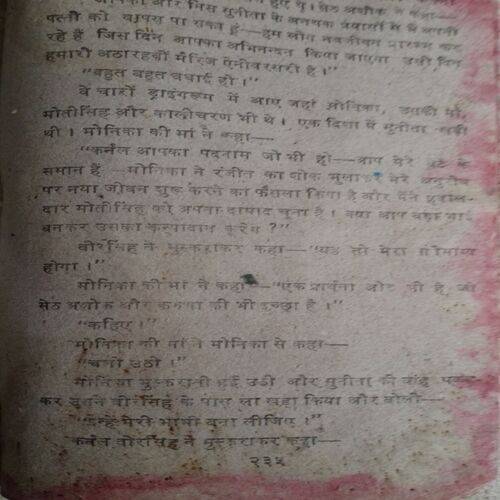 आपका और मिस सुनीता के अनथक प्रयासों से मैं अपनी
पत्नी को वापस पा सका हूं—हम लोग नवजीवन प्रारम्भ कर
रहे हैं जिस दिन आपका अभिनन्दन किया जाएगा उसी दिन
हमारी अठारहवीं मैरिज ऐनीवरसरी है।”
“बहुत बहुत बधाई हो।”
वे चारों ड्राइंगरूम में आए जहां मोनिका, उसकी मां,
मोतीसिंह और कालीचरण भी थे। एक दिशा में सुनीता खड़ी
थी। मोनिका की मां ने कहा—
“कर्नल आपका पदनाम जो भी हो—आप मेरे बेटे के
समान हैं मोनिका ने रंजीत का शोक भुलाकर मेरे अनुरोध
पर नया जीवन शुरू करने का फैसला किया है और मैंने हवाल-
दार मोतीसिंह को अपना दामाद चुना है। क्या आप बड़ा भाई
बनकर उसका कन्यादान करेंगे?”
वीरसिंह ने मुस्कराकर कहा—“यह तो मेरा सौभाग्य
होगा।”
मोनिका की मां ने कहा—“एक प्रार्थना और भी है, जो
सेठ अशोक और करुणा की भी इच्छा है।”
“कहिए।”
मोनिका की मां ने मोनिका से कहा—
“चलो उठो।”
मोनिका मुस्कराती हुई उठी और सुनीता की बांह पकड़
कर उसने वीरसिंह के पास ला खड़ा किया और बोली—
“इन्हें मेरी भाभी बना लीजिए।”
कर्नल वीरसिंह ने मुस्कराकर कहा—
२३५